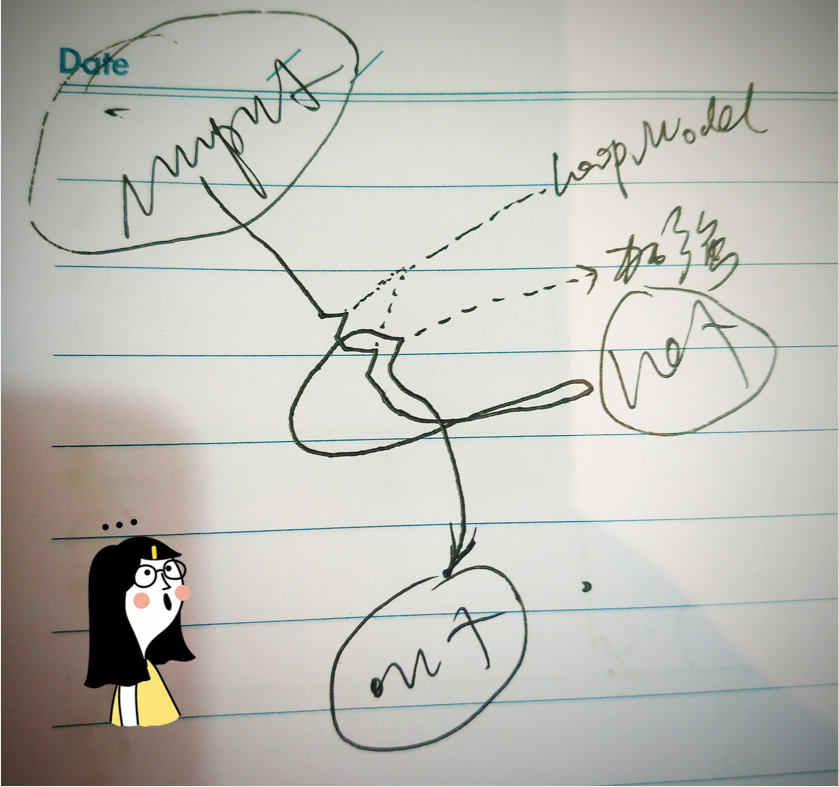 Date
input
Loop Model
net
out